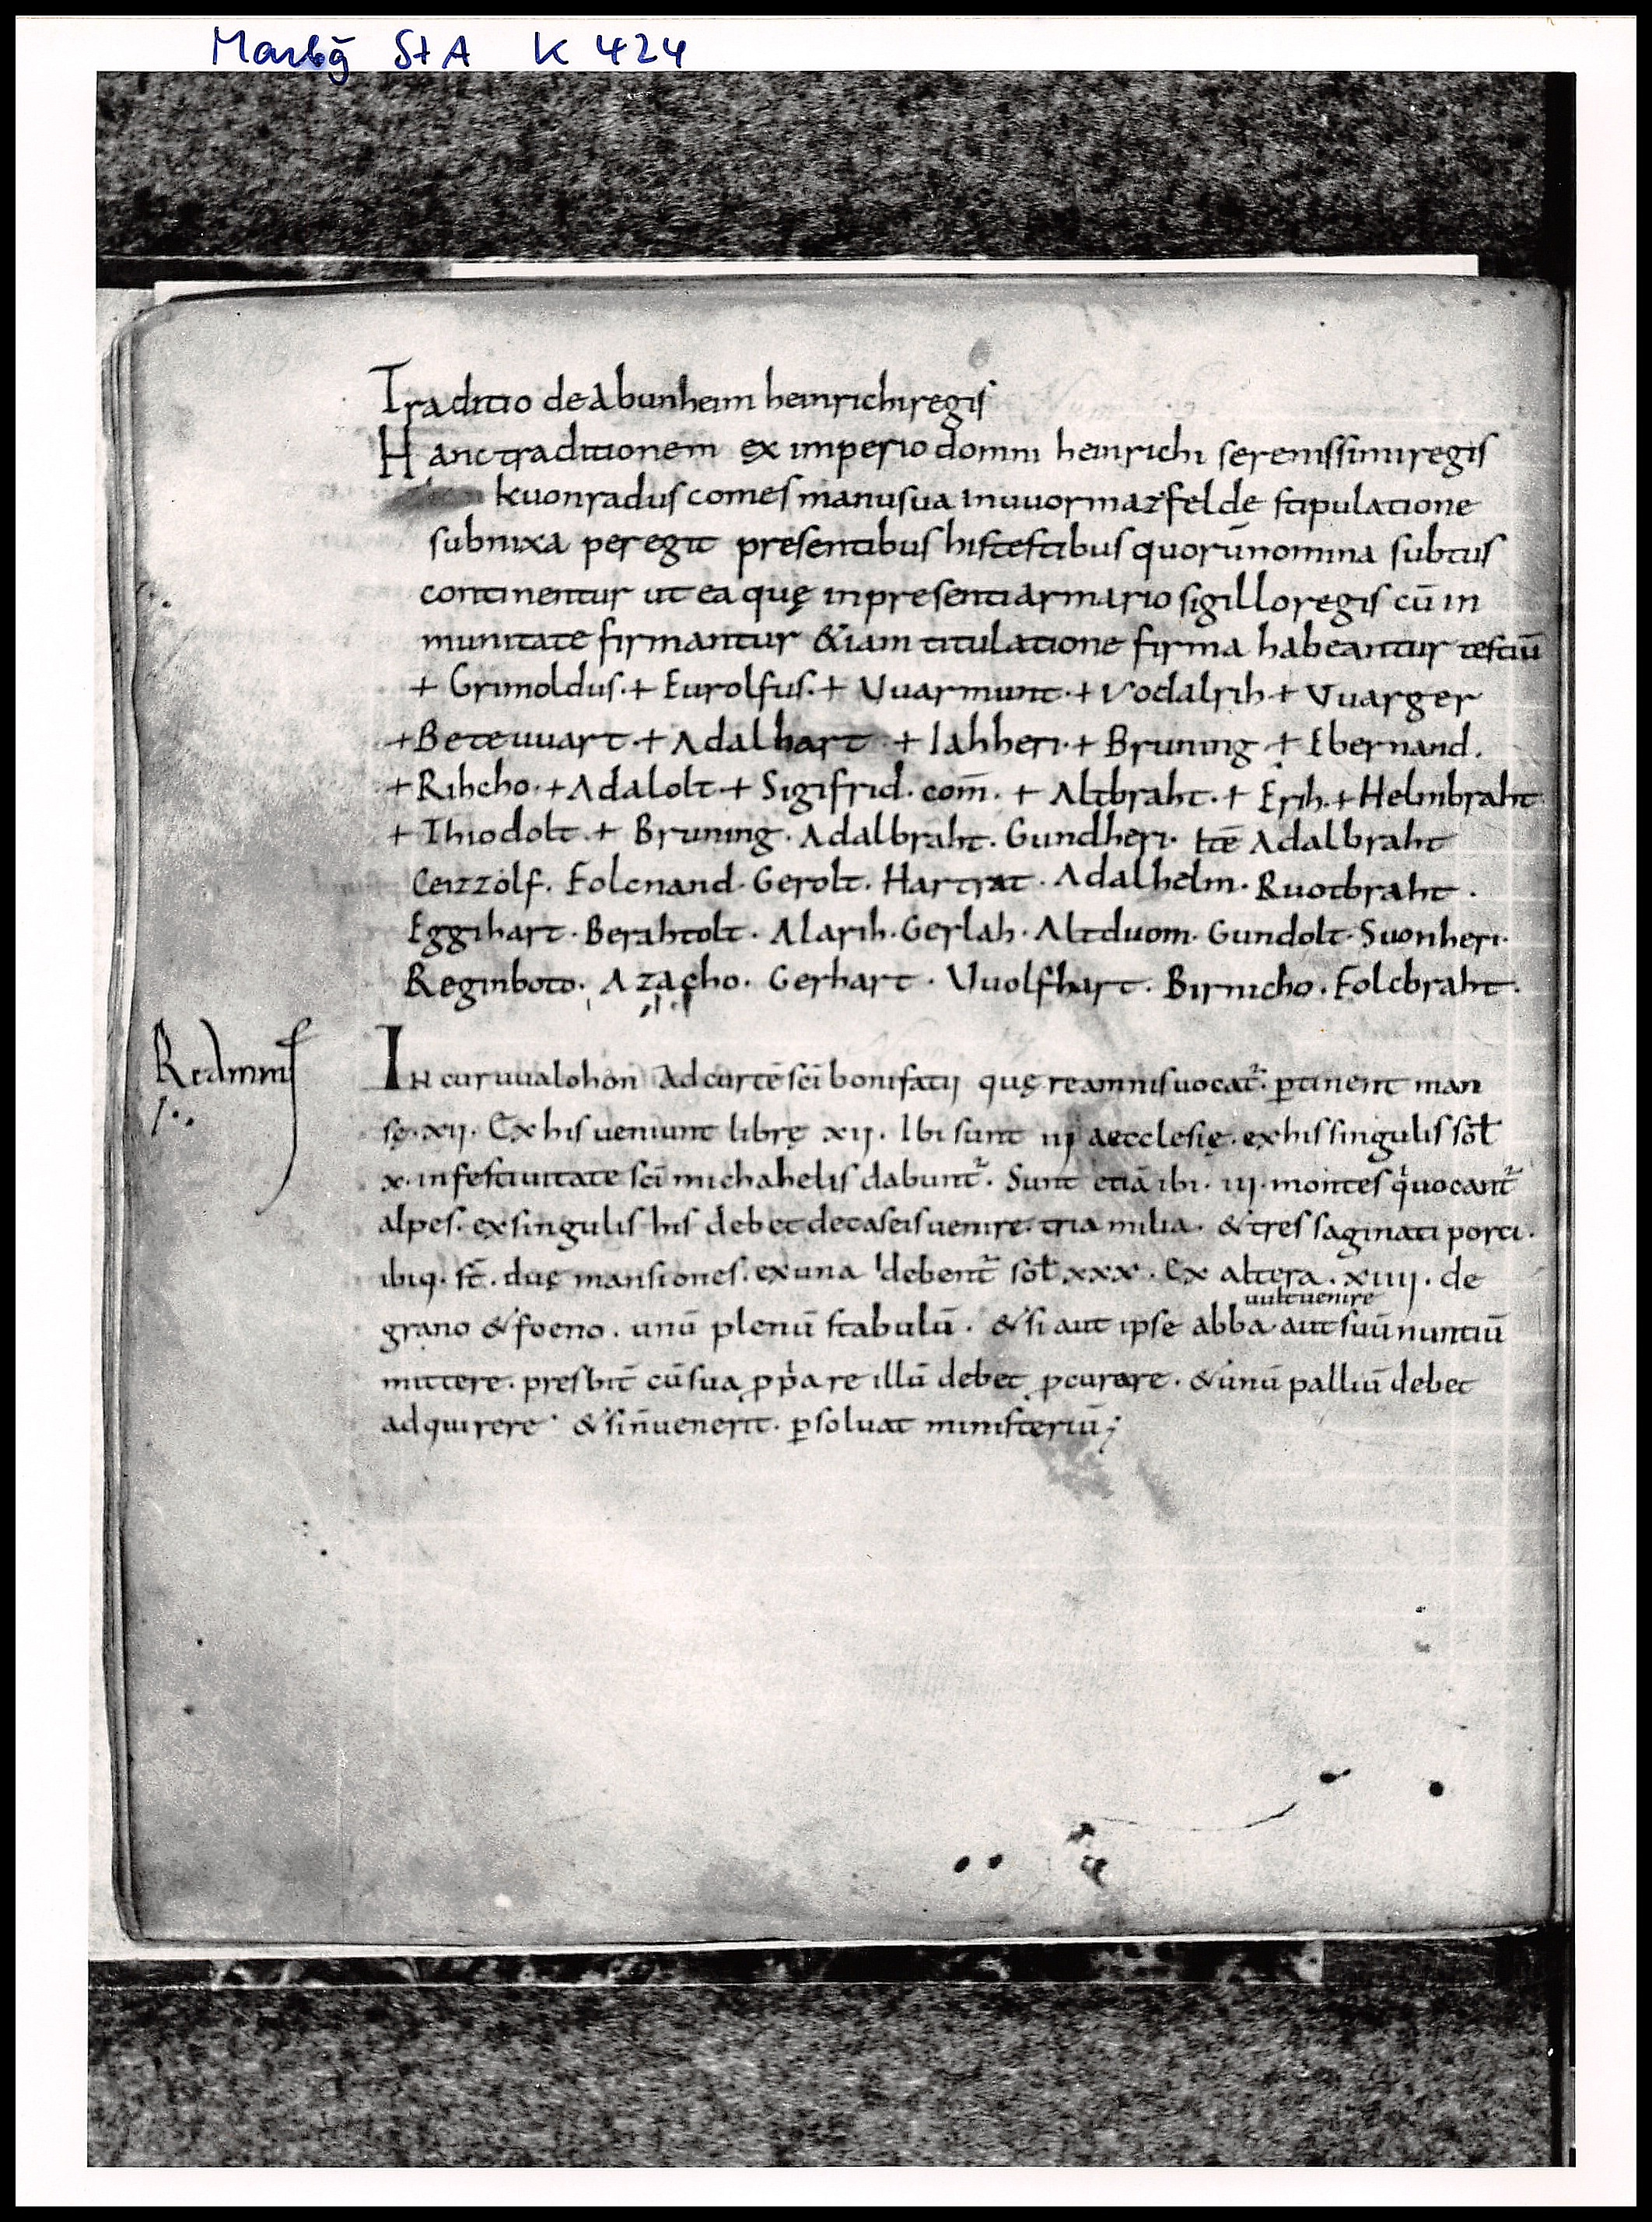 Marbg̃ StA K 424
Traditio de abunheim heinrichi regis
Hanc traditionem ex imperio domni heinrichi serenissimi regis
kuonradus comes manu sua in uuormazfelde stipulatione
subnixa peregit presentibus his testibus quorū nomina subtus
continentur ut ea quę in presenti armario sigillo regis cū in
munitate firmantur & iam titulatione firma habeantur testiū
+ Grimoldus. + Eurolfus. + Uuarmunt. + Vodalrih + Vuarger
+ Beteuuart. + Adalhart + Iahheri. + Bruning + Ebernand.
+ Rihcho. + Adalolt + Sigifrid. com̄. + Altbraht. + Erih. + Helmbraht
+ Thiodolt. + Bruning. Adalbraht. Gundheri. Itē Adalbraht
Ceizzolf. Folcnand. Gerolt. Hartrat. Adalhelm. Ruotbraht.
Eggihart. Berahtolt. Alarih. Gerlah. Altduom. Gundolt. Suonheri.
Reginboto. Azacho. Gerhart. Vuolfhart. Birnicho. Folcbraht.
In curuualohon Ad curtē sc̄i bonifatij quę reamnis uocat᷑. ꝑtinent man
sę. xij. Ex his ueniunt librę xij. Ibi sunt iij aecclesię. ex his singulis sol̄
x. in festiuitate sc̄i michahelis dabunt᷑. Sunt etiā ibi. iij. montes q̇ uocant᷑
alpes. ex singulis his debet de caseis uenire. tria milia. & tres saginati porci.
ibiq. st̄. duę mansiones. ex una debent᷑ sol̄ xxx. Ex altera. xiiij. de
uult uenire
grano & foeno. unū plenū stabulū. & si aut ipse abba aut suū nuntiū
mittere. presbit̄ cū sua ꝓp̍a re illū debet ꝓcurare. & unū palliū debet
adquirere. & si n̄ uenerit. ꝑsoluat ministeriū;